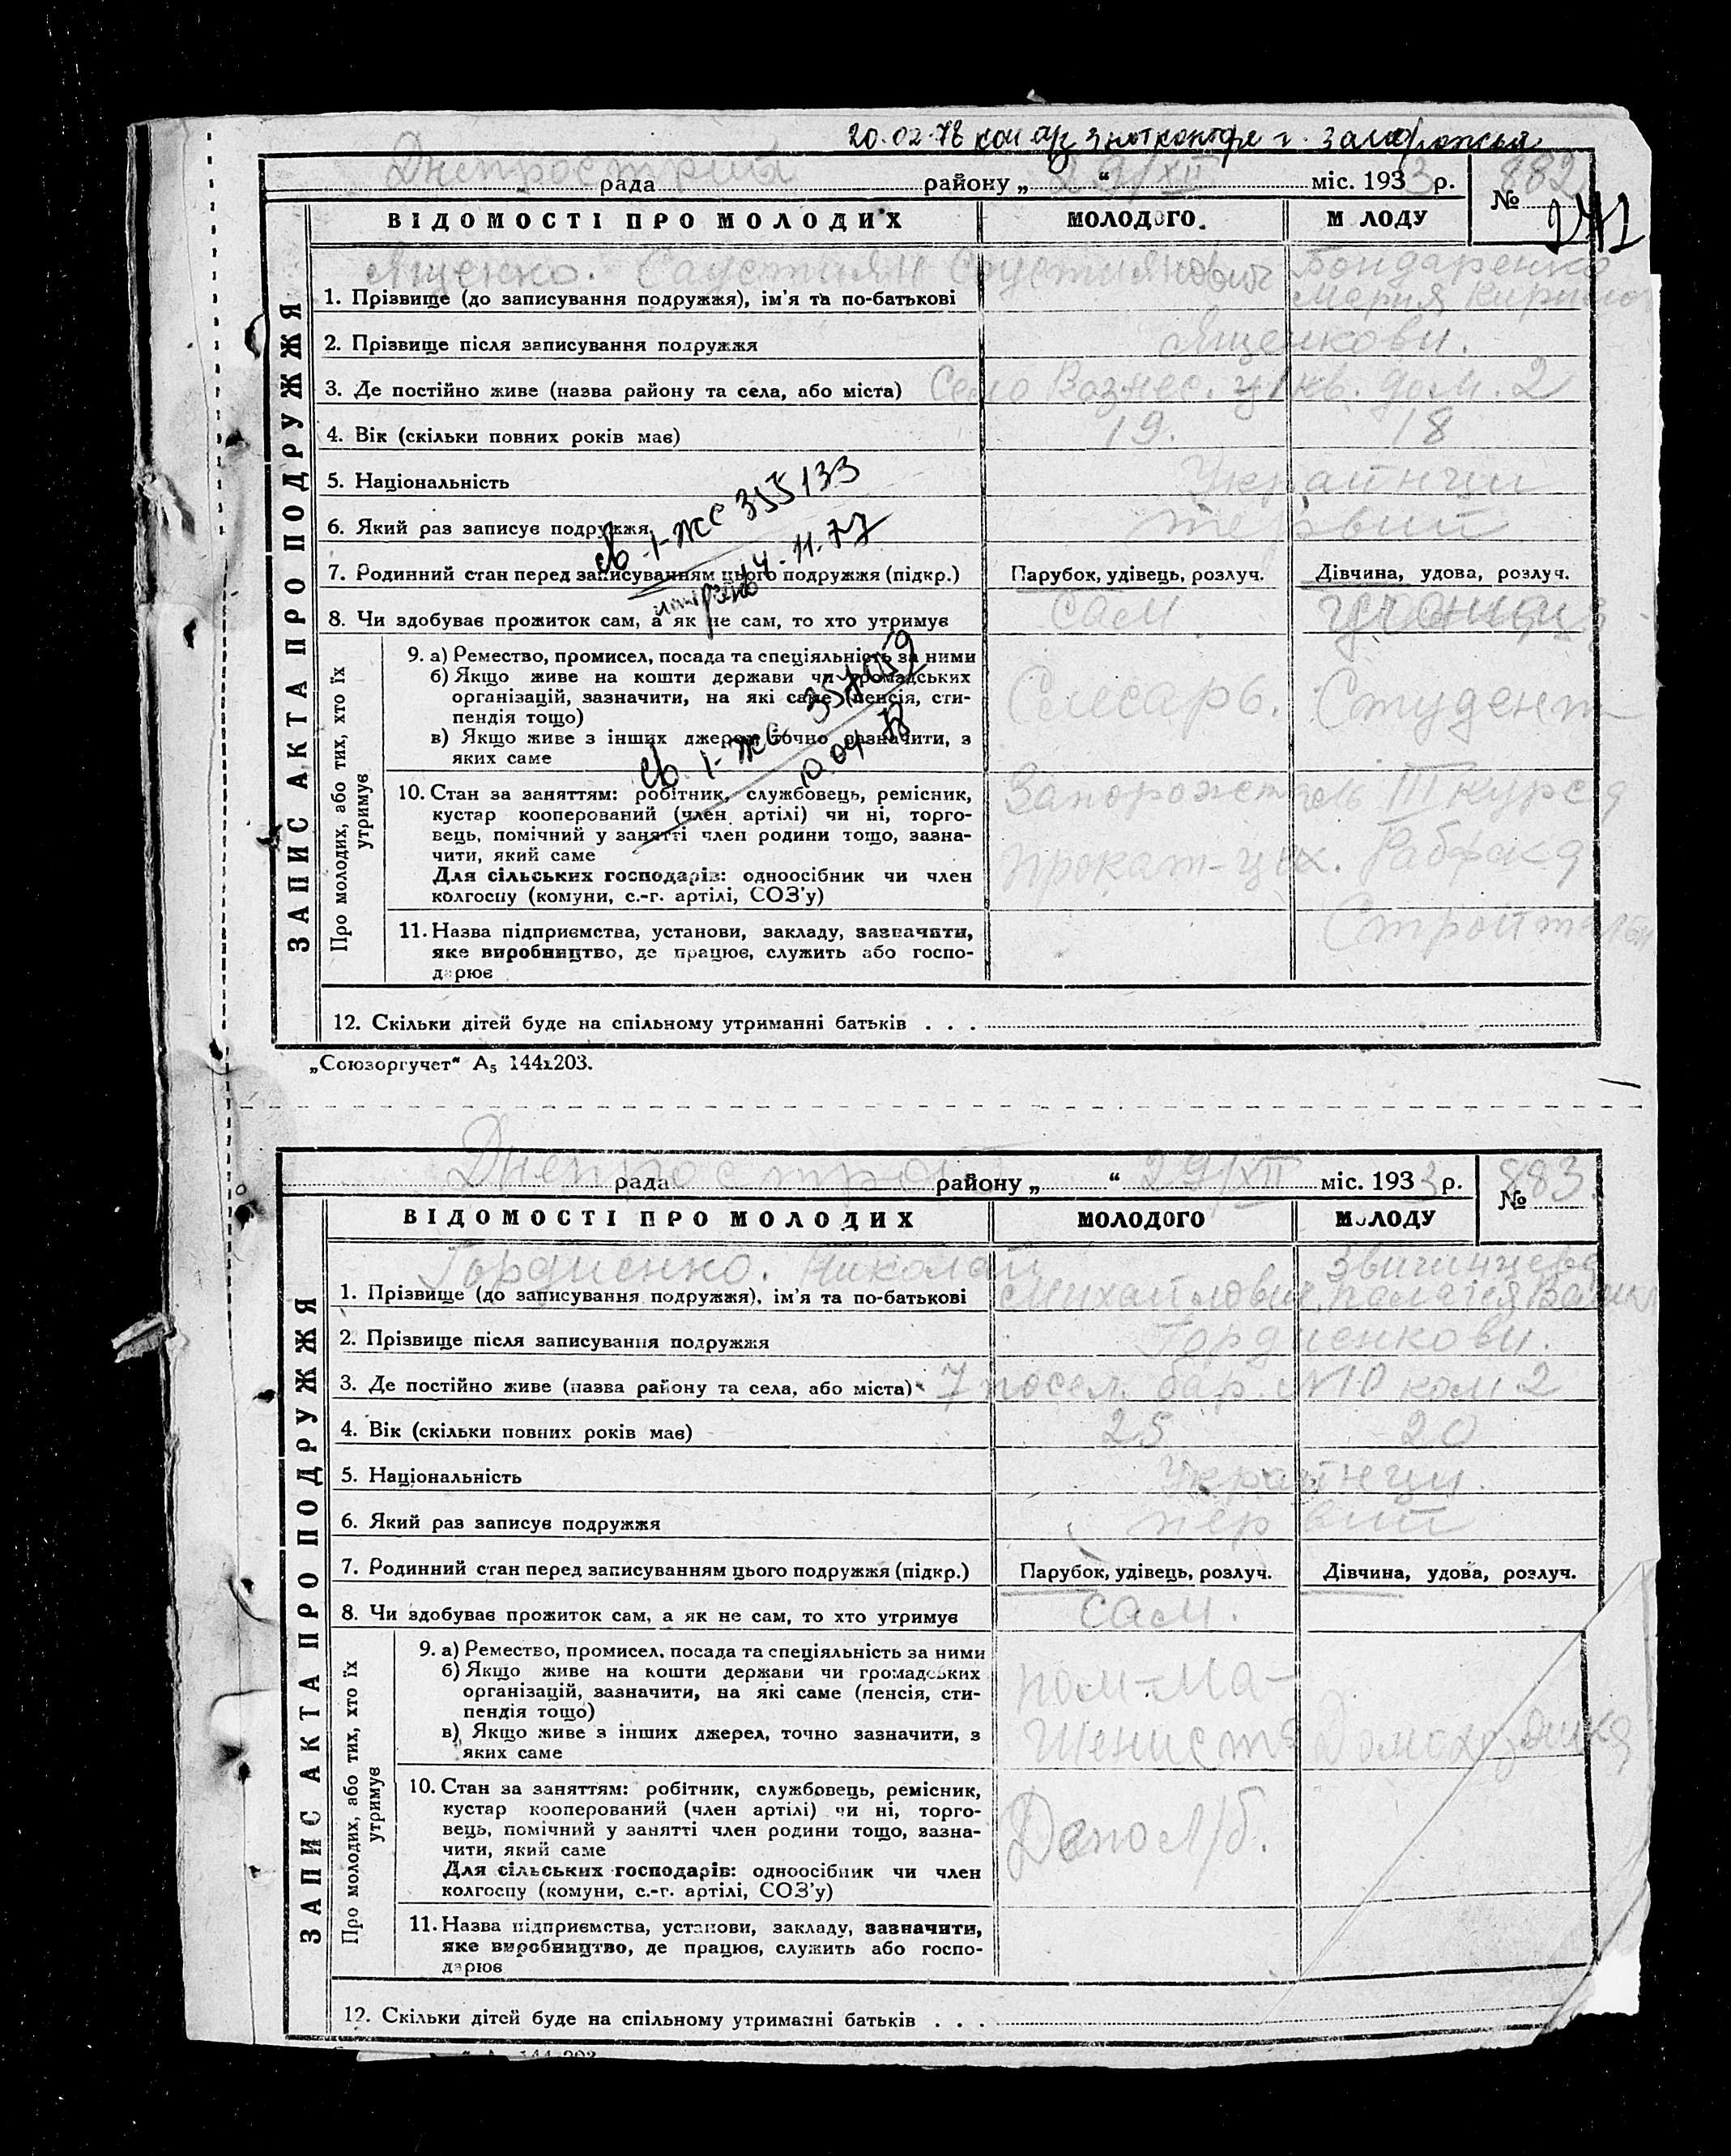 20.02.78 г. Запорожья
Днепрострой рада району „ “ 29/XII міс. 1933 р. № 882
241
ВІДОМОСТІ ПРО МОЛОДИХ МОЛОДОГО. М ЛОДУ
ЗАПИС АКТА ПРО ПОДРУЖЖЯ
Ященко. Саустиян Саустиянович Бондаренко
1. Прізвище (до записування подружжя), ім'я та по-батькові Мария Кирило
2. Прізвище після записування подружжя Ященкови.
3. Де постійно живе (назва району та села, або міста) Село Вознес. дом. 2
4. Вік (скільки повних років має) 19. 18
5. Національність Украйнци
6. Який раз записує подружжя первий
7. Родинний стан перед записуванням цього подружжя (підкр.) Парубок, удівець, розлуч. Дівчина, удова, розлуч.
8. Чи здобуває прожиток сам, а як не сам, то хто утримує сам.
Про молодих, або тих, хто їх утримує
9. а) Ремество, промисел, посада та спеціяльність за ними
б) Якщо живе на кошти держави чи громадських
організацій, зазначити, на які саме (пенсія, сти-
пендія тощо)
в) Якщо живе з інших джерел, точно зазначити, з
яких саме
Слесарь. Студент
10. Стан за заняттям: робітник, службовець, ремісник,
кустар кооперований (член артілі) чи ні, торго-
вець, помічний у занятті член родини тощо, зазна-
чити, який саме
Для сільських господарів: одноосібник чи член
колгоспу (комуни, с.-г. артілі, СОЗ'у)
Запорожсталь III курса
прокат-цех. Рабфака
11. Назва підприємства, установи, закладу, зазначити,
яке виробництво, де працює, служить або госпо-
дарює
12. Скільки дітей буде на спільному утриманні батьків . . .
св. I-ЖС 355133
14.11.77
св. I-ЖС
10.04.78
„Союзоргучет“ А5 144х203.
Днепрострой рада району „ “ 29/XII міс. 1933 р. № 883.
ВІДОМОСТІ ПРО МОЛОДИХ МОЛОДОГО МОЛОДУ
ЗАПИС АКТА ПРО ПОДРУЖЖЯ
Гордиенко. Николай
1. Прізвище (до записування подружжя), ім'я та по-батькові Михайлович
2. Прізвище після записування подружжя Гордиенкови.
3. Де постійно живе (назва району та села, або міста) 7 посел. бар. №10 ком 2
4. Вік (скільки повних років має) 25 20
5. Національність Украйнци.
6. Який раз записує подружжя первий
7. Родинний стан перед записуванням цього подружжя (підкр.) Парубок, удівець, розлуч. Дівчина, удова, розлуч.
8. Чи здобуває прожиток сам, а як не сам, то хто утримує сам.
Про молодих, або тих, хто їх утримує
9. а) Ремество, промисел, посада та спеціяльність за ними
б) Якщо живе на кошти держави чи громадських
організацій, зазначити, на які саме (пенсія, сти-
пендія тощо)
в) Якщо живе з інших джерел, точно зазначити, з
яких саме
пом-ма-
шениста Домохозяйка
10. Стан за заняттям: робітник, службовець, ремісник,
кустар кооперований (член артілі) чи ні, торго-
вець, помічний у занятті член родини тощо, зазна-
чити, який саме
Для сільських господарів: одноосібник чи член
колгоспу (комуни, с.-г. артілі, СОЗ'у)
Депо л/б.
11. Назва підприємства, установи, закладу, зазначити,
яке виробництво, де працює, служить або госпо-
дарює
12. Скільки дітей буде на спільному утриманні батьків . . .